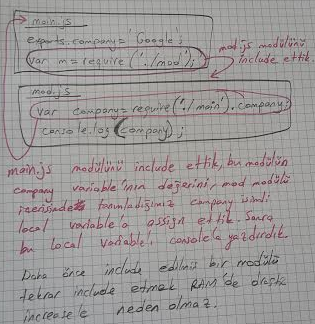 main.js
exports.company = 'Google';
var m = require('./mod');
mod.js modülünü
include ettik.
mod.js
var company = require('./main').company;
console.log(company);
main.js modülünü include ettik, bu modülün
company variable'nın değerini, mod modülü
içerisinde tanımladığımız company isimli
local variable'a assign ettik. Sonra
bu local variable'ı console'a yazdırdık.
Daha önce include edilmiş bir modülü
tekrar include etmek RAM'de drastic
increase'e neden olmaz.